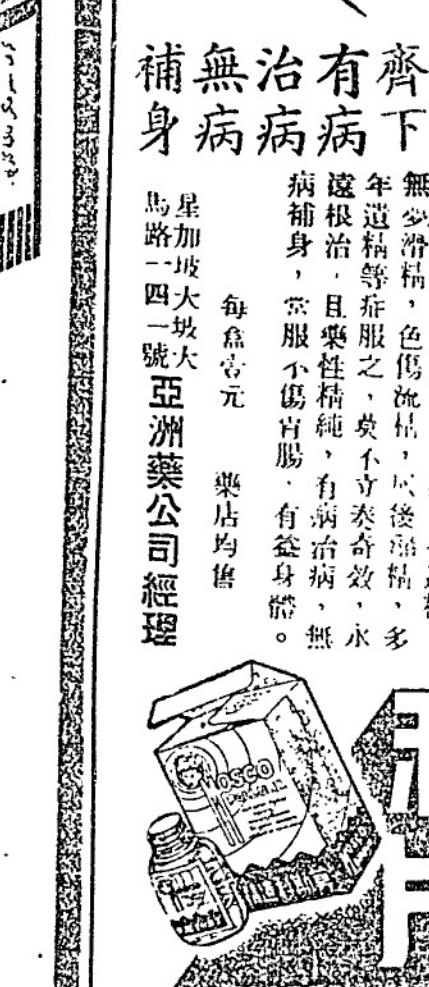 齊下
有病
治病
無病
補身
無夢滑精，色傷流精，尿後漏精，多
年遺精等症服之，莫不立奏奇效，永
遠根治，且藥性精純，有病治病，無
病補身，常服不傷胃腸，有益身體。
每盒壹元　藥店均售
星加坡大坡大
馬路一四一號
亞洲藥公司經理
MOSCO